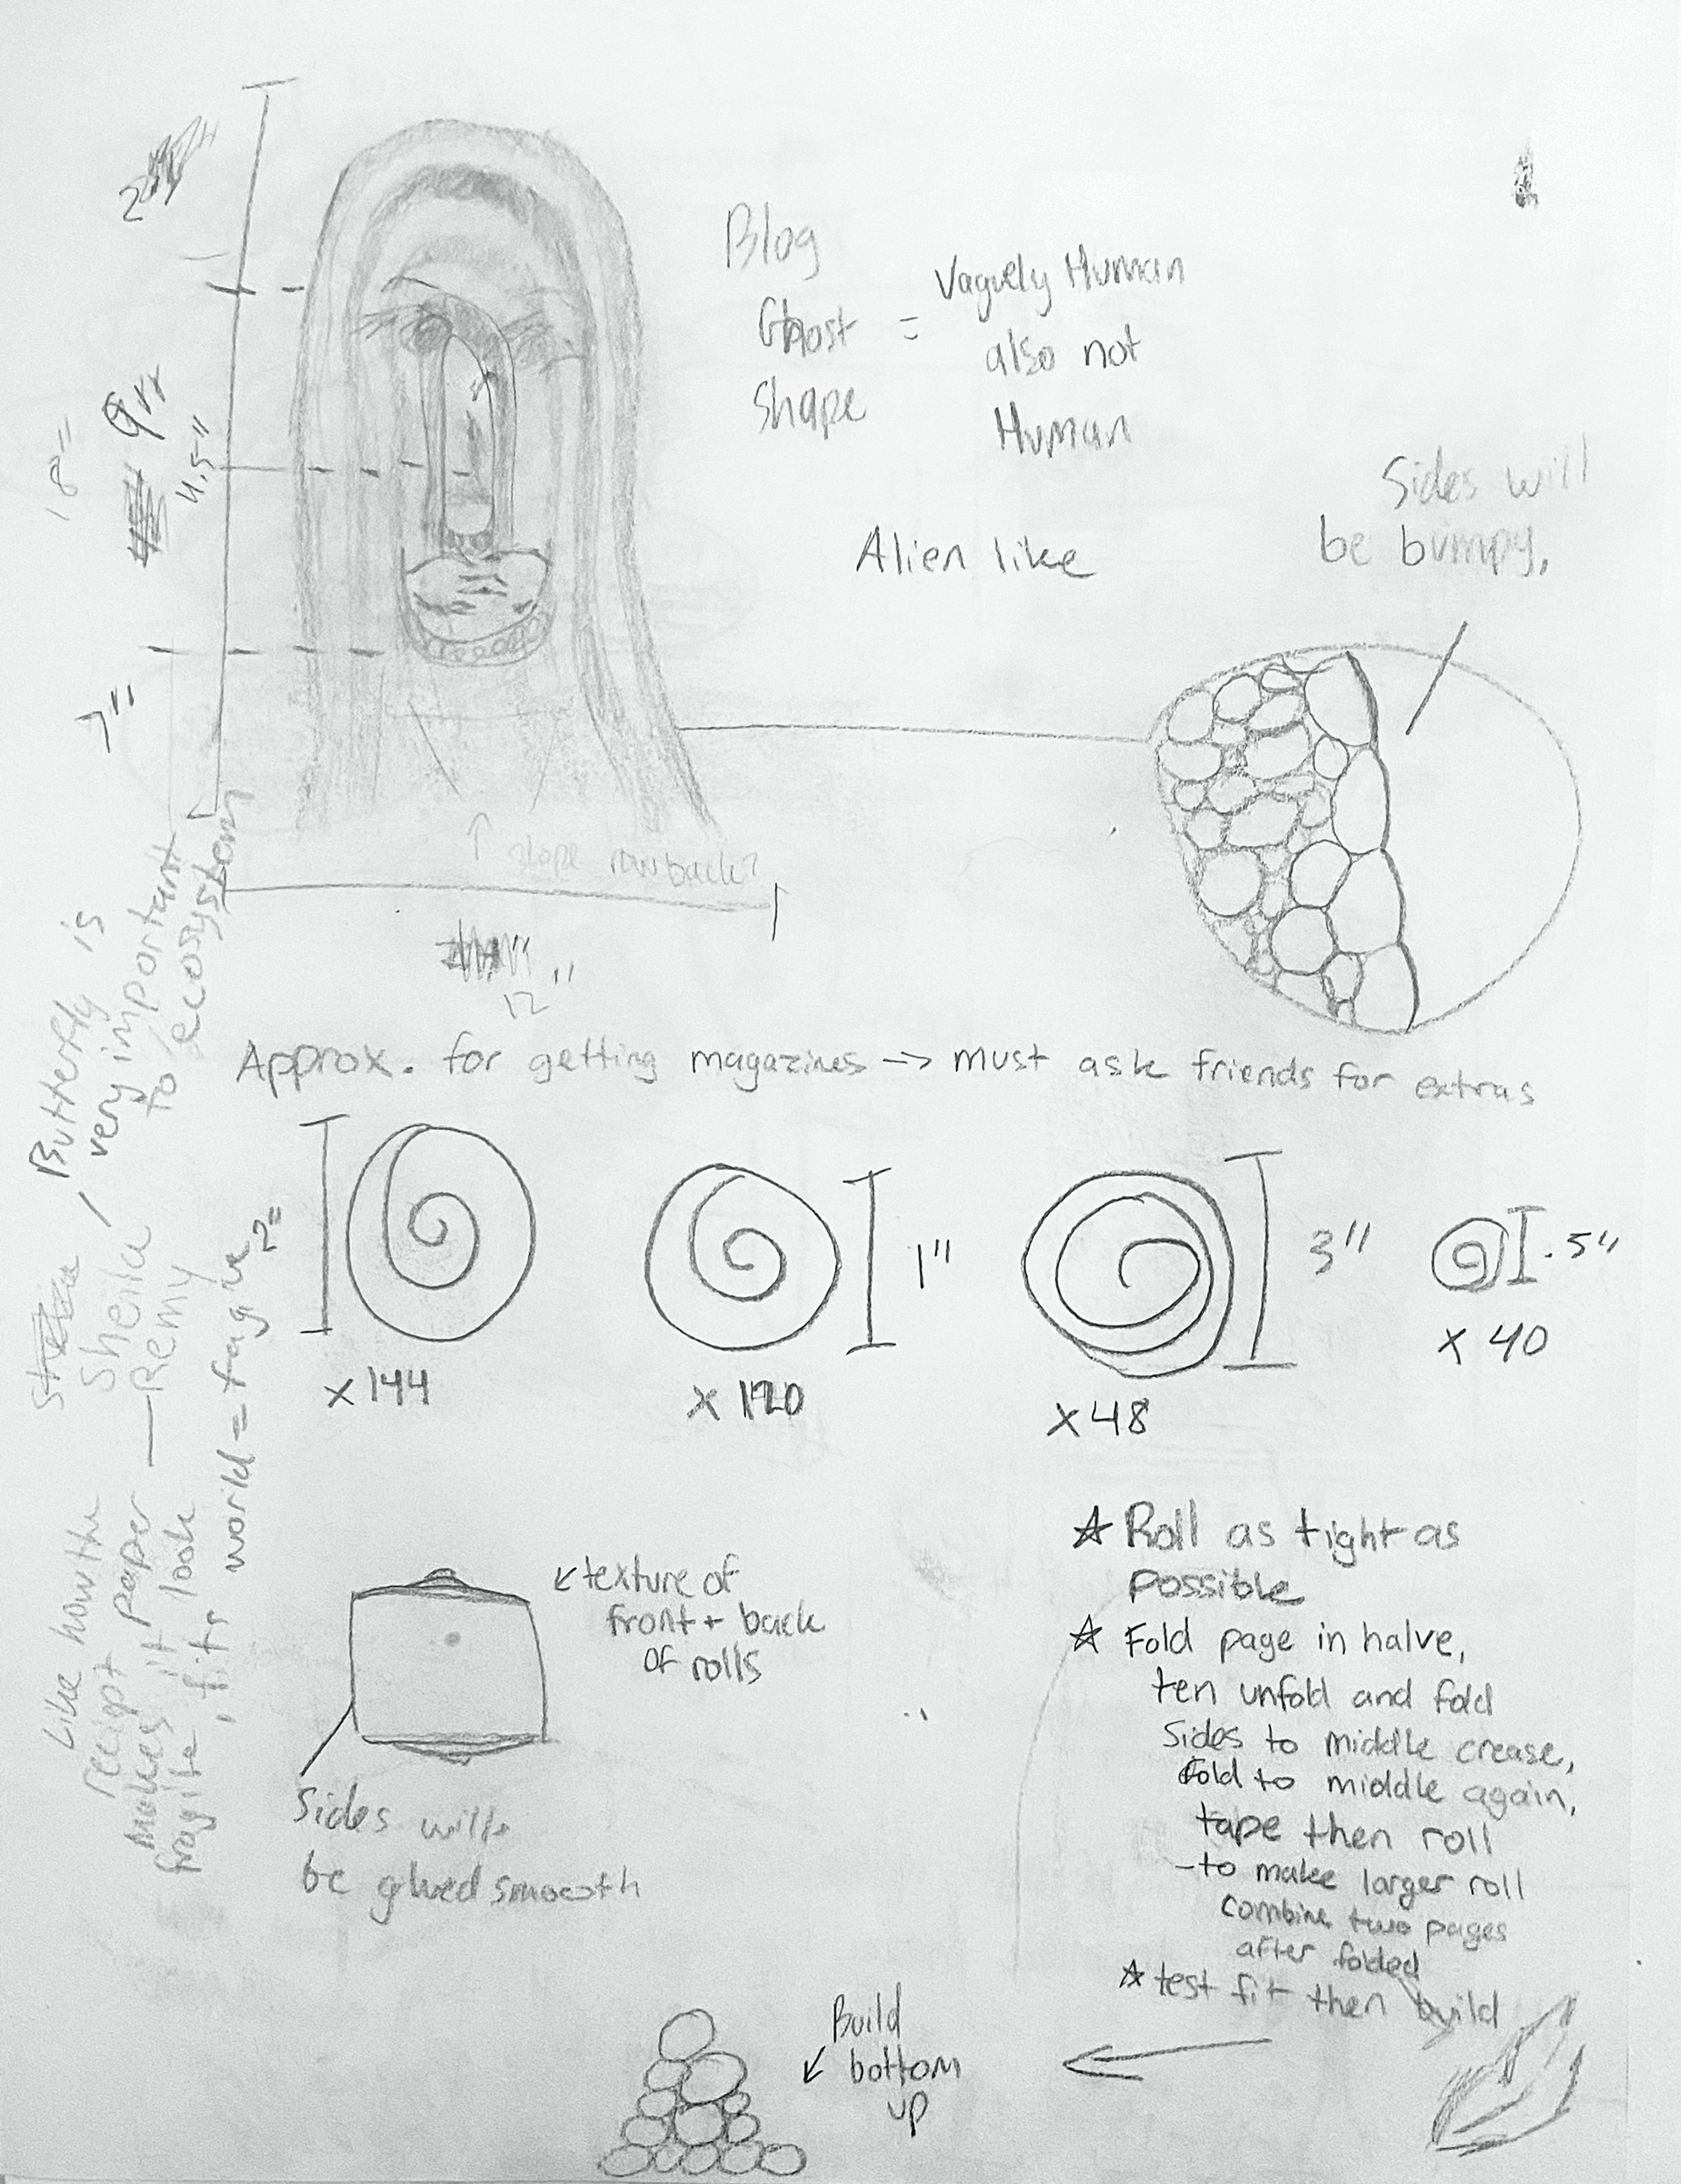 Blog
Ghost = Vaguely Human
shape also not
Human
Alien like
Sides will
be bumpy.
18"
9"
4.5"
7"
slope back?
12"
Butterfly is
very important
to ecosystem
Approx. for getting magazines -> must ask friends for extras
2"
1"
3"
.5"
x 144
x 120
x 48
x 40
Sheila
— Remy
Like how the
receipt paper
makes it look
fragile, fits
world = fragile
texture of
front + back
of rolls
Sides will
be glued smooth
☆ Roll as tight as
possible
☆ Fold page in halve,
ten unfold and fold
sides to middle crease,
fold to middle again,
tape then roll
- to make larger roll
combine two pages
after folded
☆ test fit then build
Build
bottom
up